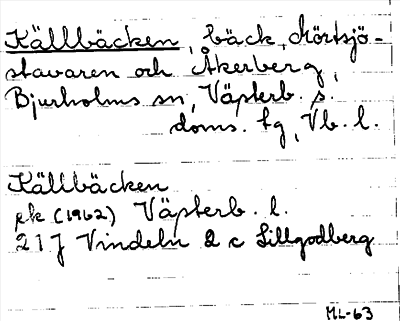 Källbäcken, bäck, Mörtsjö-
stavaren och Åkerberg,
Bjurholms sn, Västerb. s.
doms. tg, Vb. l.
Källbäcken
ek (1962) Västerb. l.
21J Vindeln 2 c Lillgodberg
ML-63